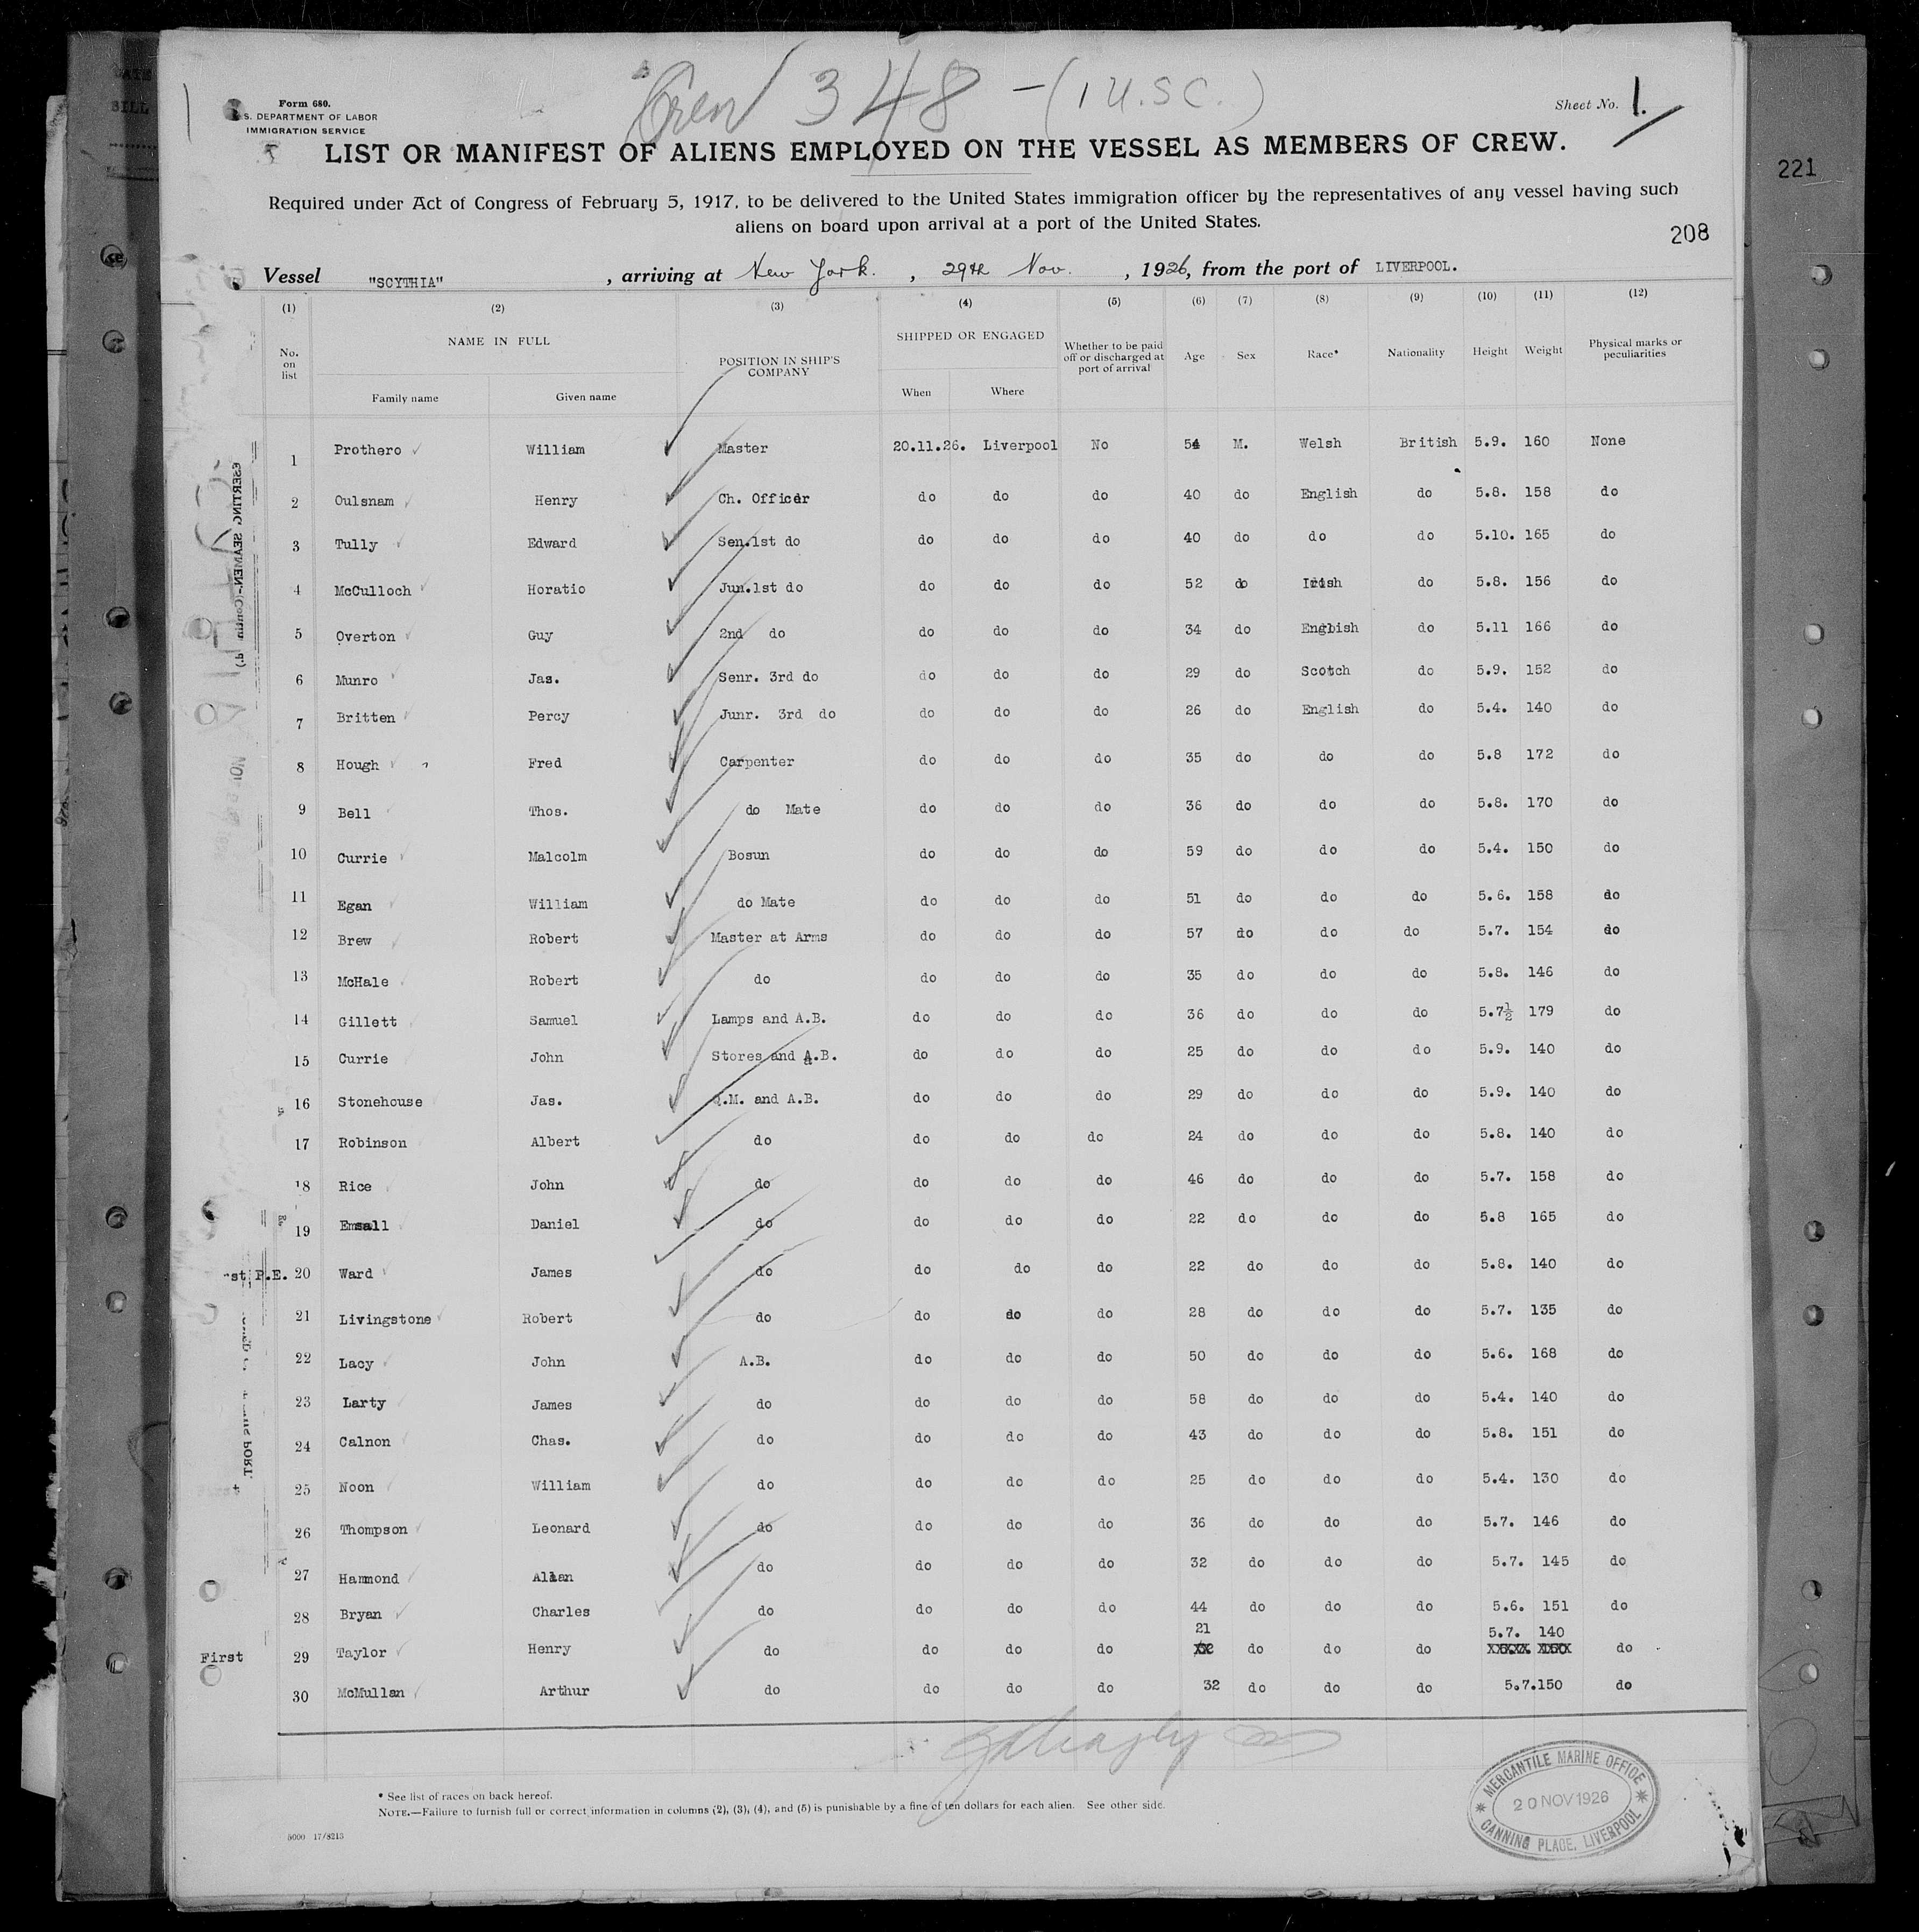 Crew 348 - (1 U.S.C.)
Form 680.
S. DEPARTMENT OF LABOR
IMMIGRATION SERVICE
Sheet No. 1.
LIST OR MANIFEST OF ALIENS EMPLOYED ON THE VESSEL AS MEMBERS OF CREW.
221
Required under Act of Congress of February 5, 1917, to be delivered to the United States immigration officer by the representatives of any vessel having such
aliens on board upon arrival at a port of the United States.
208
Vessel "SCYTHIA", arriving at New York., 29th Nov., 1926, from the port of LIVERPOOL.
(1) (2) (3) (4) (5) (6) (7) (8) (9) (10) (11) (12)
No. on list NAME IN FULL POSITION IN SHIP'S COMPANY SHIPPED OR ENGAGED Whether to be paid off or discharged at port of arrival Age Sex Race* Nationality Height Weight Physical marks or peculiarities
Family name Given name When Where
1 Prothero William Master 20.11.26. Liverpool No 54 M. Welsh British 5.9. 160 None
2 Oulsnam Henry Ch. Officer do do do 40 do English do 5.8. 158 do
3 Tully Edward Sen.1st do do do do 40 do do do 5.10. 165 do
4 McCulloch Horatio Jun.1st do do do do 52 do Irish do 5.8. 156 do
5 Overton Guy 2nd do do do do 34 do English do 5.11 166 do
6 Munro Jas. Senr. 3rd do do do do 29 do Scotch do 5.9. 152 do
7 Britten Percy Junr. 3rd do do do do 26 do English do 5.4. 140 do
8 Hough Fred Carpenter do do do 35 do do do 5.8 172 do
9 Bell Thos. do Mate do do do 36 do do do 5.8. 170 do
10 Currie Malcolm Bosun do do do 59 do do do 5.4. 150 do
11 Egan William do Mate do do do 51 do do do 5.6. 158 do
12 Brew Robert Master at Arms do do do 57 do do do 5.7. 154 do
13 McHale Robert do do do do 35 do do do 5.8. 146 do
14 Gillett Samuel Lamps and A.B. do do do 36 do do do 5.7½ 179 do
15 Currie John Stores and A.B. do do do 25 do do do 5.9. 140 do
16 Stonehouse Jas. Q.M. and A.B. do do do 29 do do do 5.9. 140 do
17 Robinson Albert do do do do 24 do do do 5.8. 140 do
18 Rice John do do do do 46 do do do 5.7. 158 do
19 Emsall Daniel do do do do 22 do do do 5.8 165 do
st P.E. 20 Ward James do do do do 22 do do do 5.8. 140 do
21 Livingstone Robert do do do do 28 do do do 5.7. 135 do
22 Lacy John A.B. do do do 50 do do do 5.6. 168 do
23 Larty James do do do do 58 do do do 5.4. 140 do
24 Calnon Chas. do do do do 43 do do do 5.8. 151 do
25 Noon William do do do do 25 do do do 5.4. 130 do
26 Thompson Leonard do do do do 36 do do do 5.7. 146 do
27 Hammond Allan do do do do 32 do do do 5.7. 145 do
28 Bryan Charles do do do do 44 do do do 5.6. 151 do
21 5.7. 140
First 29 Taylor Henry do do do do do do do do
30 McMullan Arthur do do do do 32 do do do 5.7.150 do
* See list of races on back hereof.
NOTE.—Failure to furnish full or correct information in columns (2), (3), (4), and (5) is punishable by a fine of ten dollars for each alien. See other side.
5000 17/8213
MERCANTILE MARINE OFFICE
20 NOV 1926
CANNING PLACE, LIVERPOOL